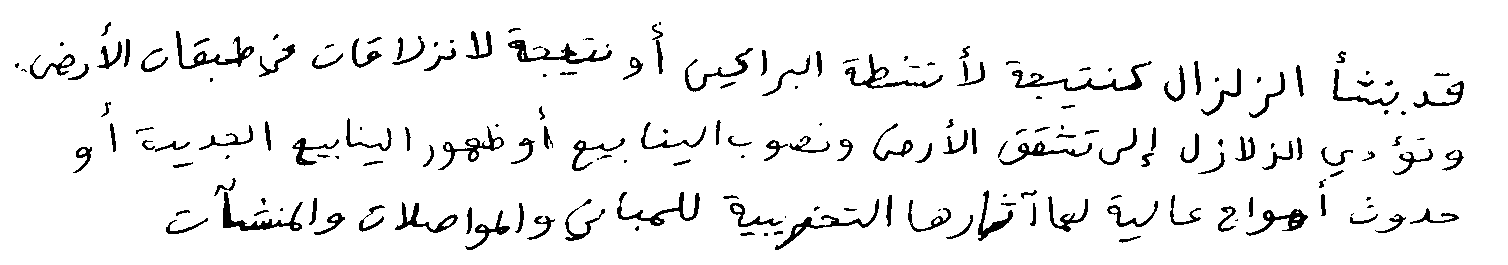 قد ينشأ الزلزال كنتيجة لأنشطة البراكين أو نتيجة لانزلاقات في طبقات الأرض.
وتؤدي الزلازل إلى تشقق الأرض ونضوب الينابيع أو ظهور الينابيع الجديدة أو
حدوث أمواج عالية لها آثارها التخريبية للمباني والمواصلات والمنشآت